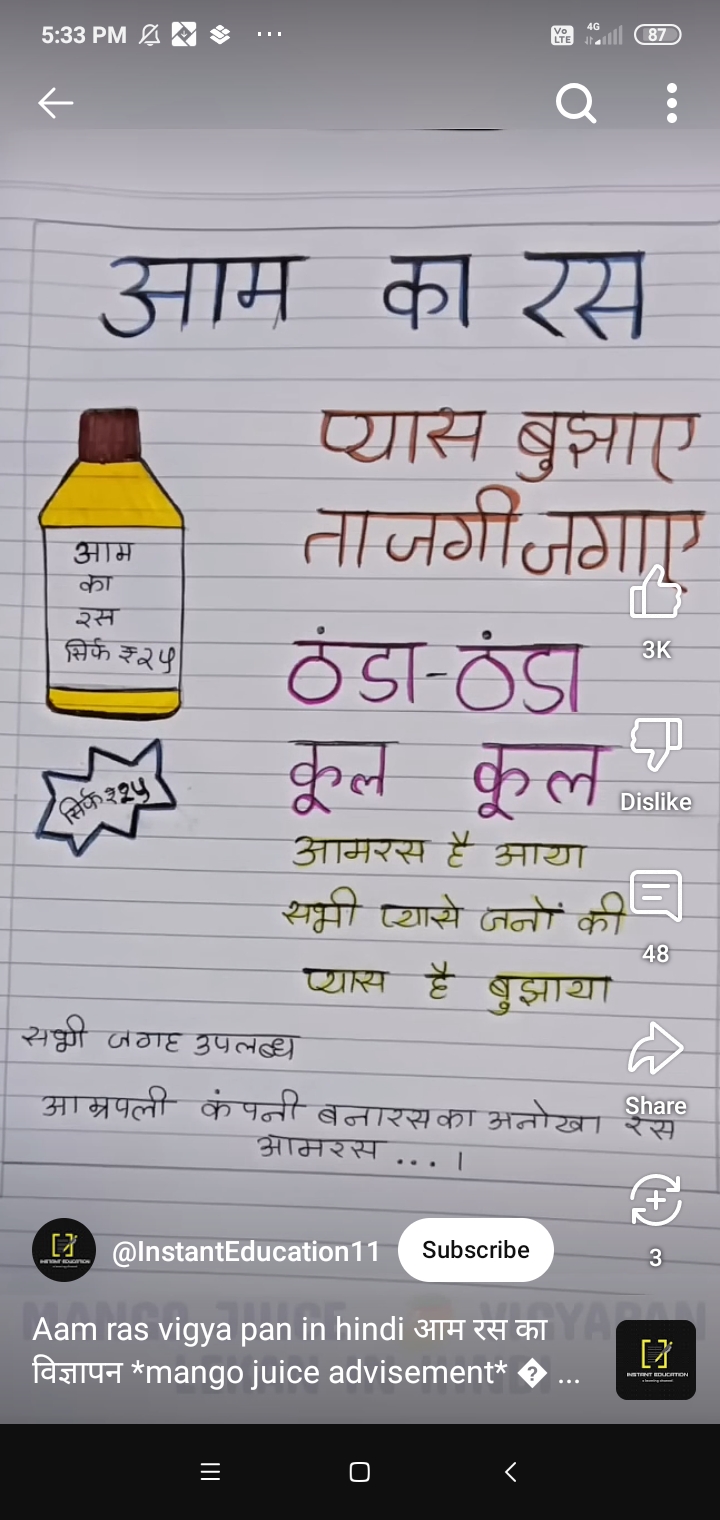 5:33 PM
Vo LTE 4G 87
आम का रस
प्यास बुझाए
ताजगी जगाए
आम
का
रस
सिर्फ ₹२५
ठंडा-ठंडा
कूल कूल
सिर्फ ₹२५
आमरस है आया
सभी प्यासे जनों की
प्यास है बुझाया
सभी जगह उपलब्ध
आम्रपली कंपनी बनारसका अनोखा रस
आमरस ... ।
3K
Dislike
48
Share
3
@InstantEducation11 Subscribe
Aam ras vigya pan in hindi आम रस का
विज्ञापन *mango juice advisement* � ...
INSTANT EDUCATION